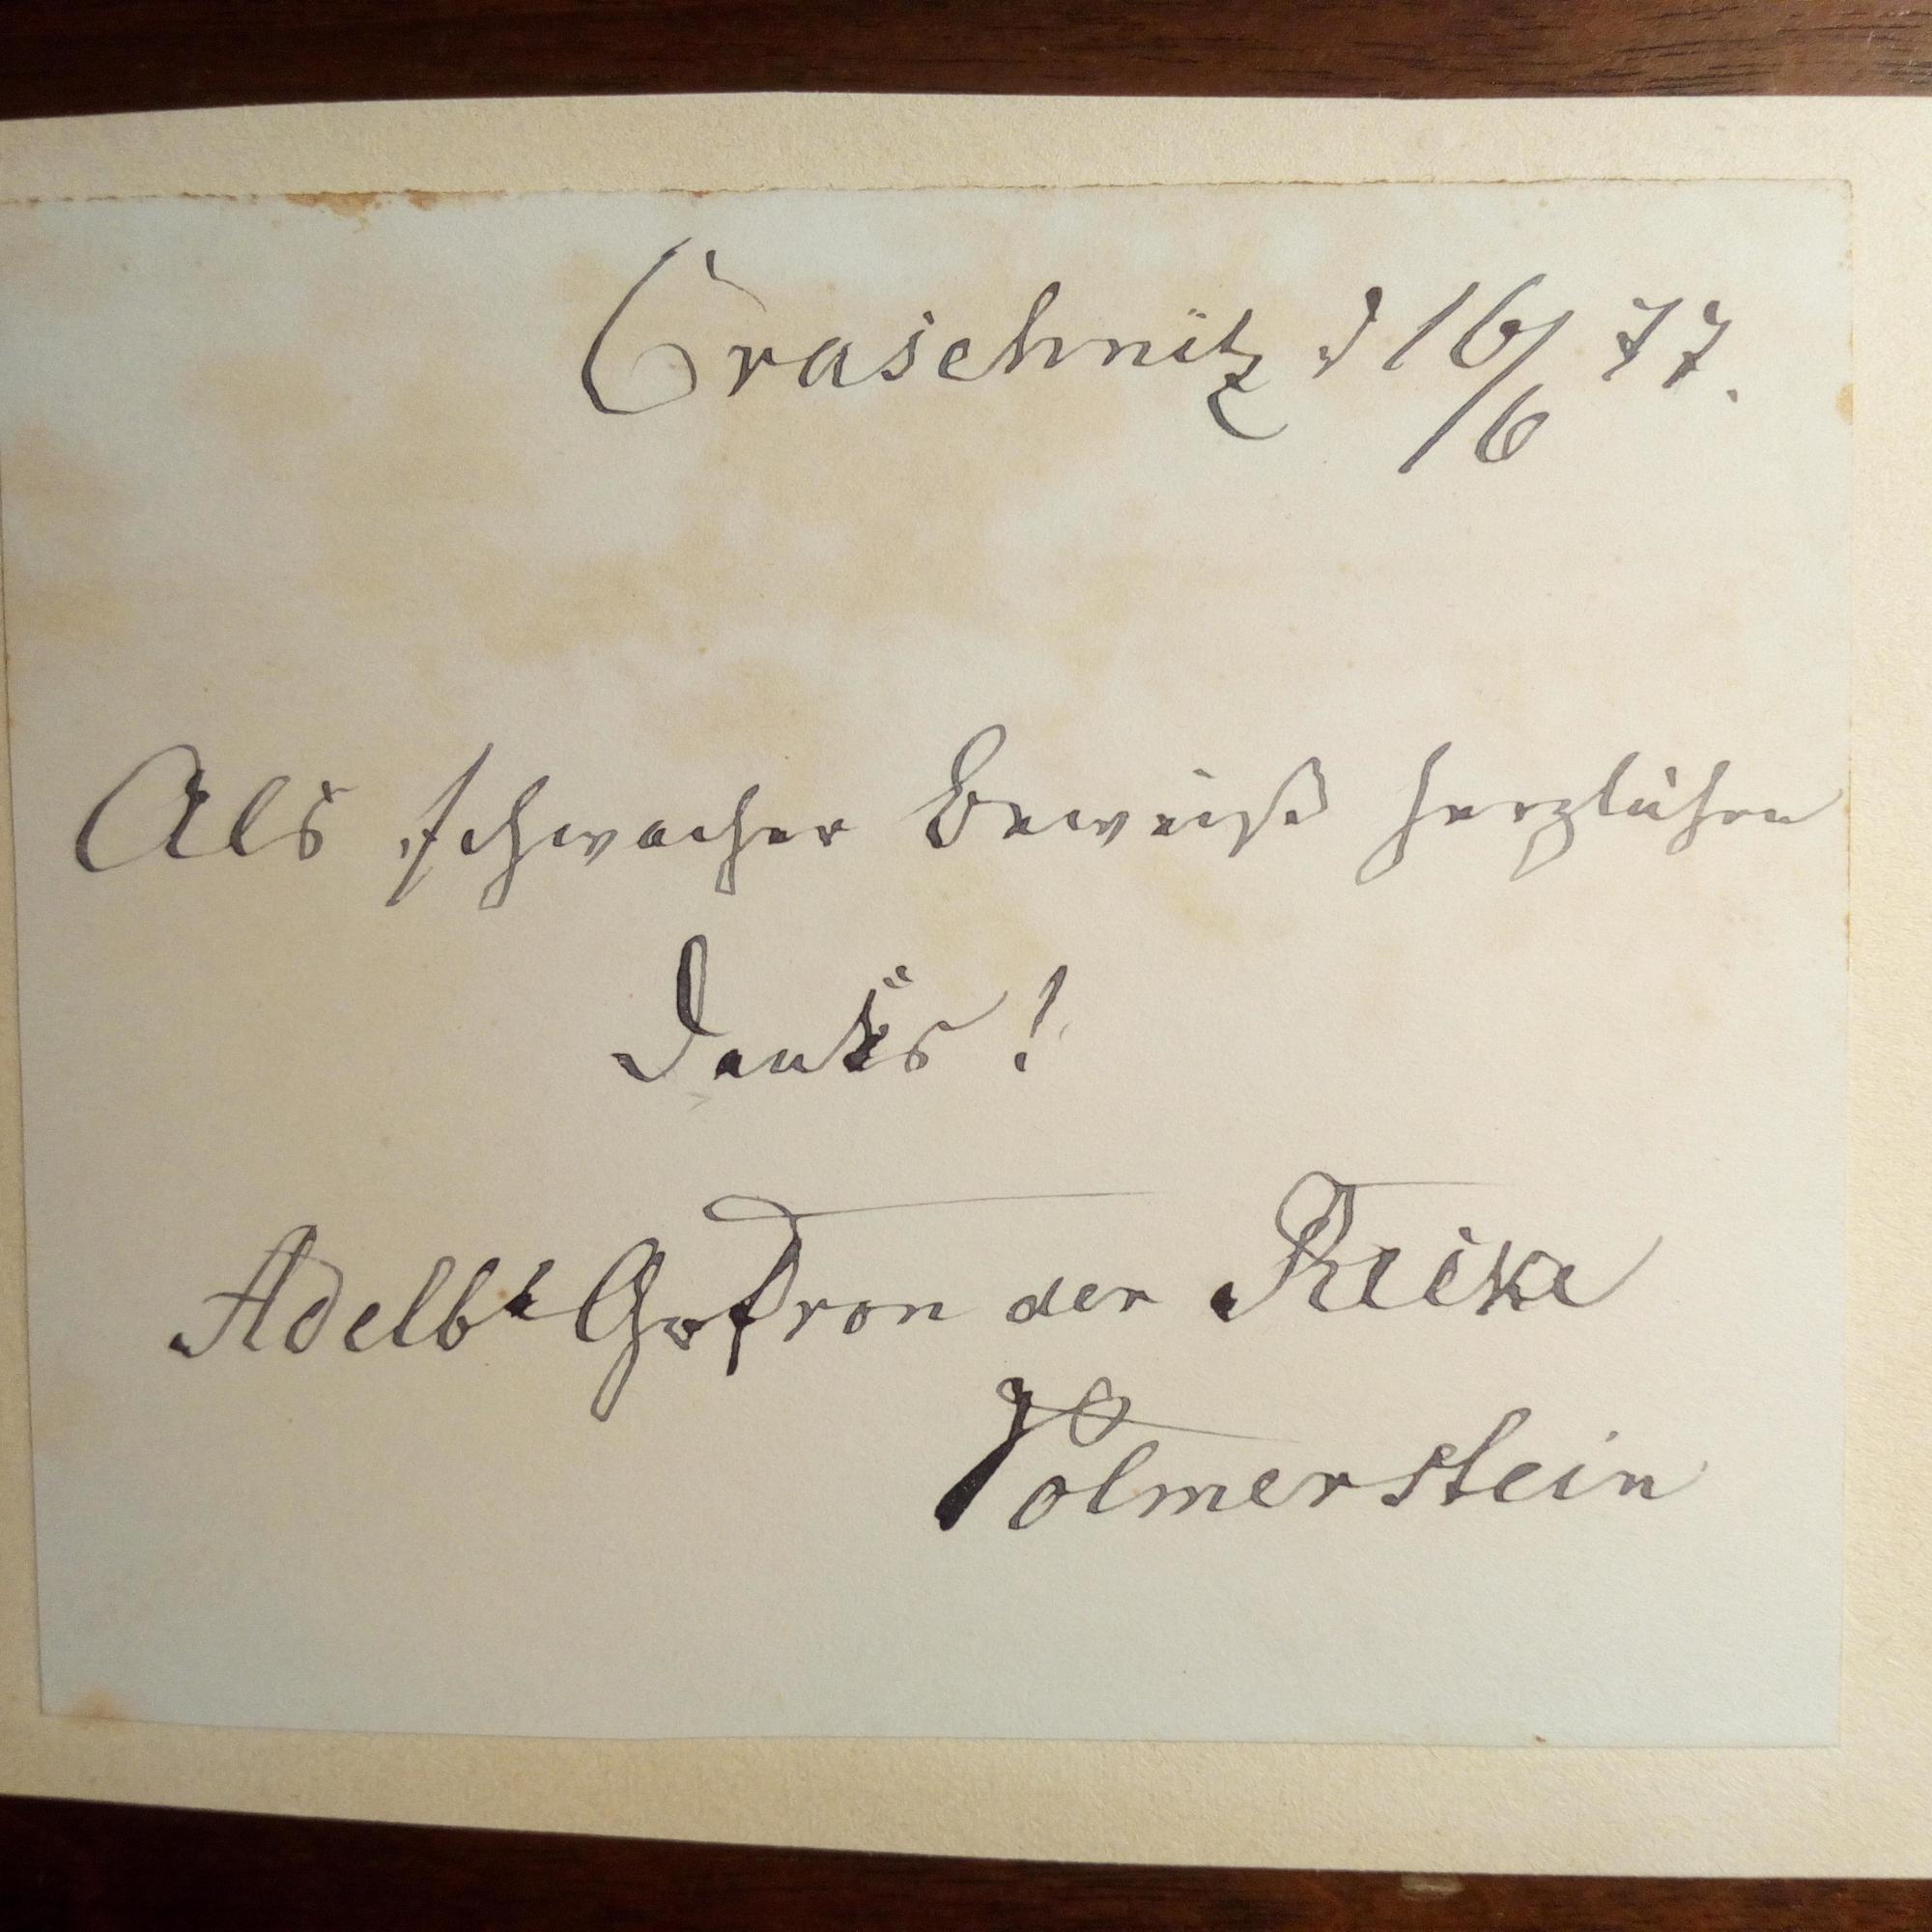 Craschnitz d 16/6 77.
Als schwacher Beweiß herzlichen
Danks!
Adelbt Grf von der Recke
Volmerstein